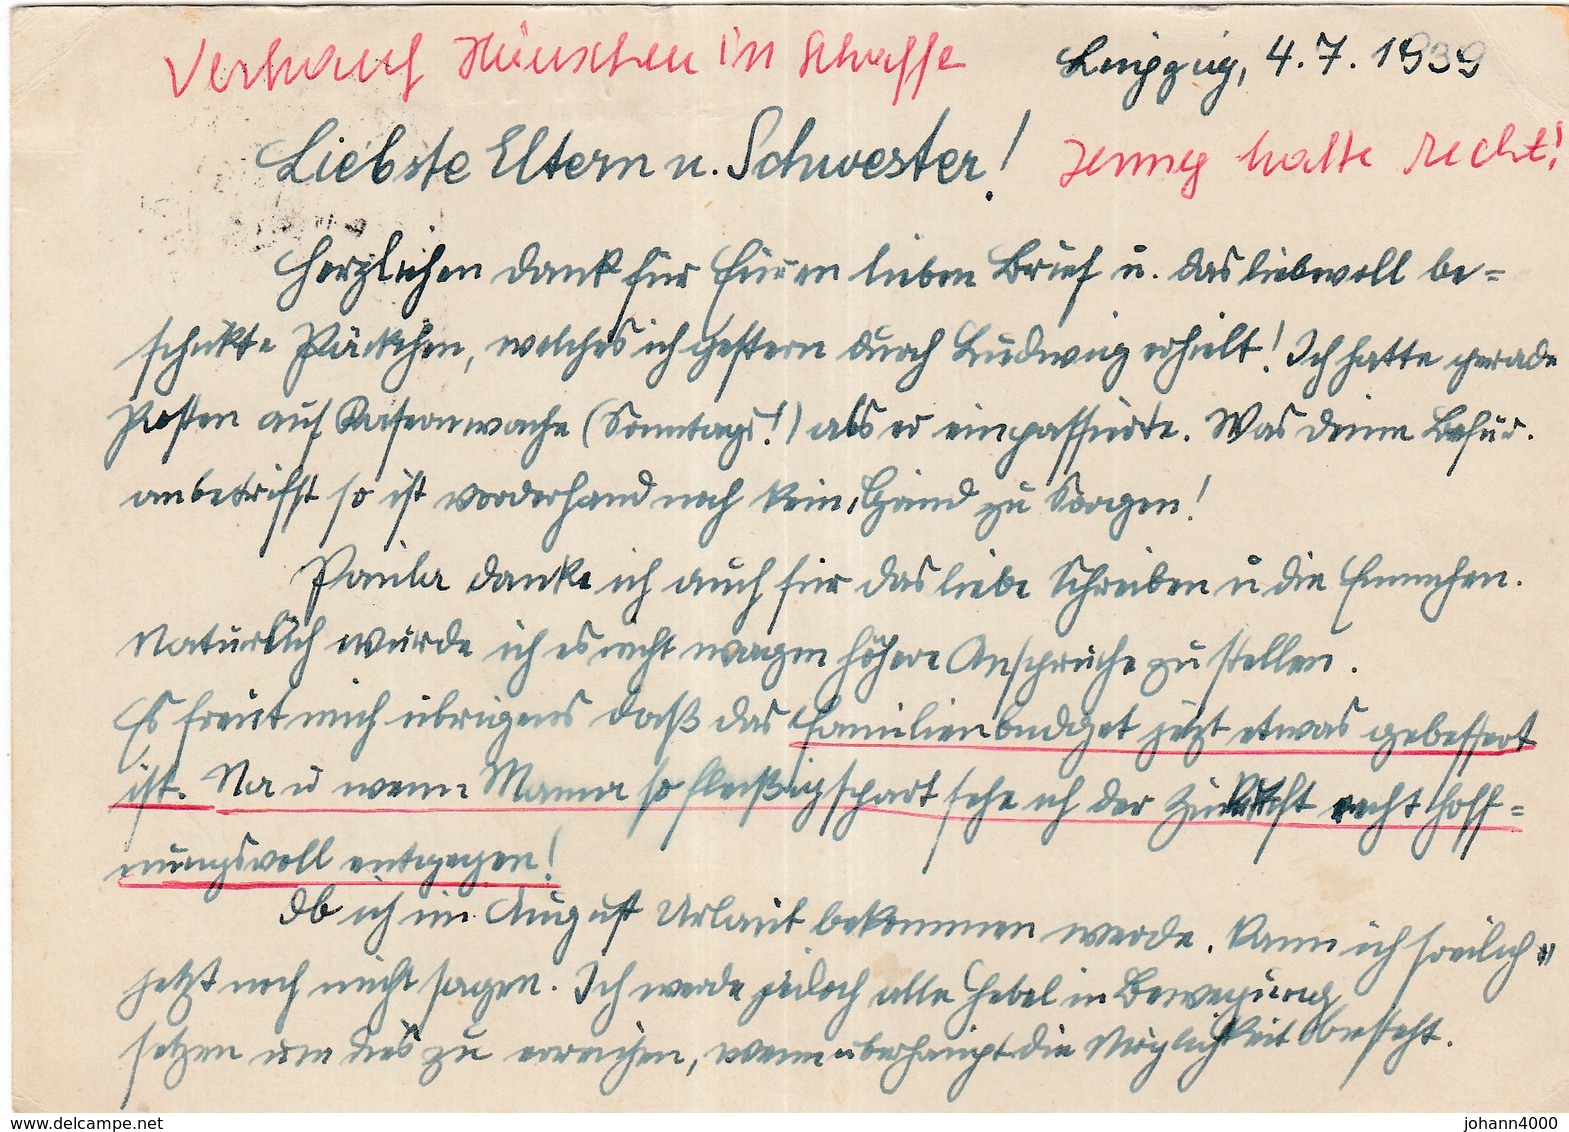 Leipzig, 4.7.1939
Liebste Eltern u. Schwester!
hatte recht!
Herzlichen Dank für Euren lieben Brief u. das liebevoll be-
schickte Päckchen, welches ich gestern durch Ludwig erhielt! Ich hatte gerade
Posten auf Kasernwache (Sonntags!) als er einpassierte. Was Deine Befür.
anbetrifft so ist vorderhand noch kein Grund zu Sorgen!
Paula danke ich auch für das liebe Schreiben u die
Natürlich würde ich es nicht wagen höhere Ansprüche zu stellen.
Es freut mich übrigens daß das Familienbudget jetzt etwas gebessert
ist. Na u wenn Mama so fleißig spart sehe ich der Zukunft recht hoff=
nungsvoll entgegen!
Ob ich im August Urlaub bekommen werde. kann ich freilich
jetzt noch nicht sagen. Ich werde jedoch alle Hebel in Bewegung
setzen um dies zu erreichen, wenn überhaupt die Möglichkeit besteht.
www.delcampe.net
johann4000